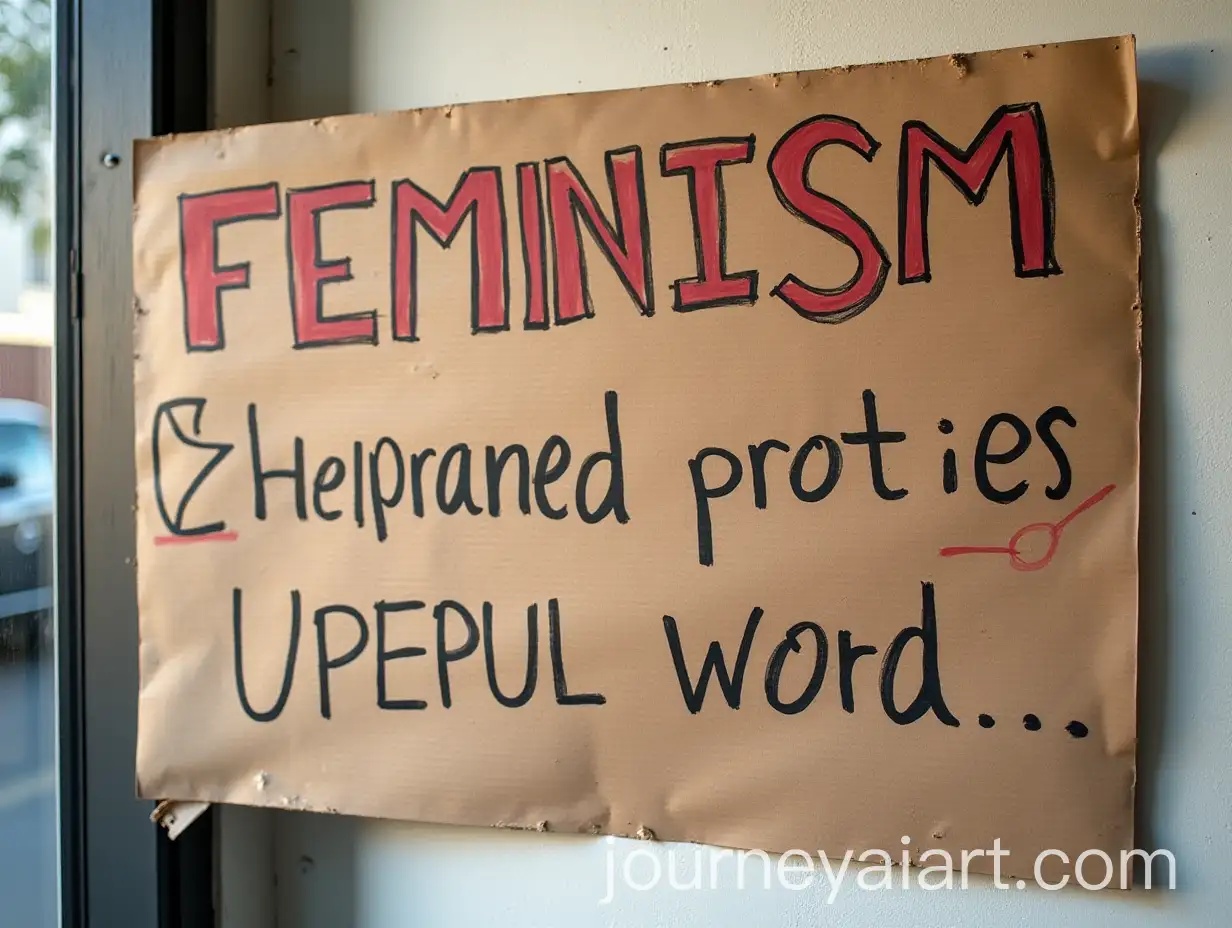 FEMINISM
Helpraned proties
UPEPUL word...
journeyaiart.com